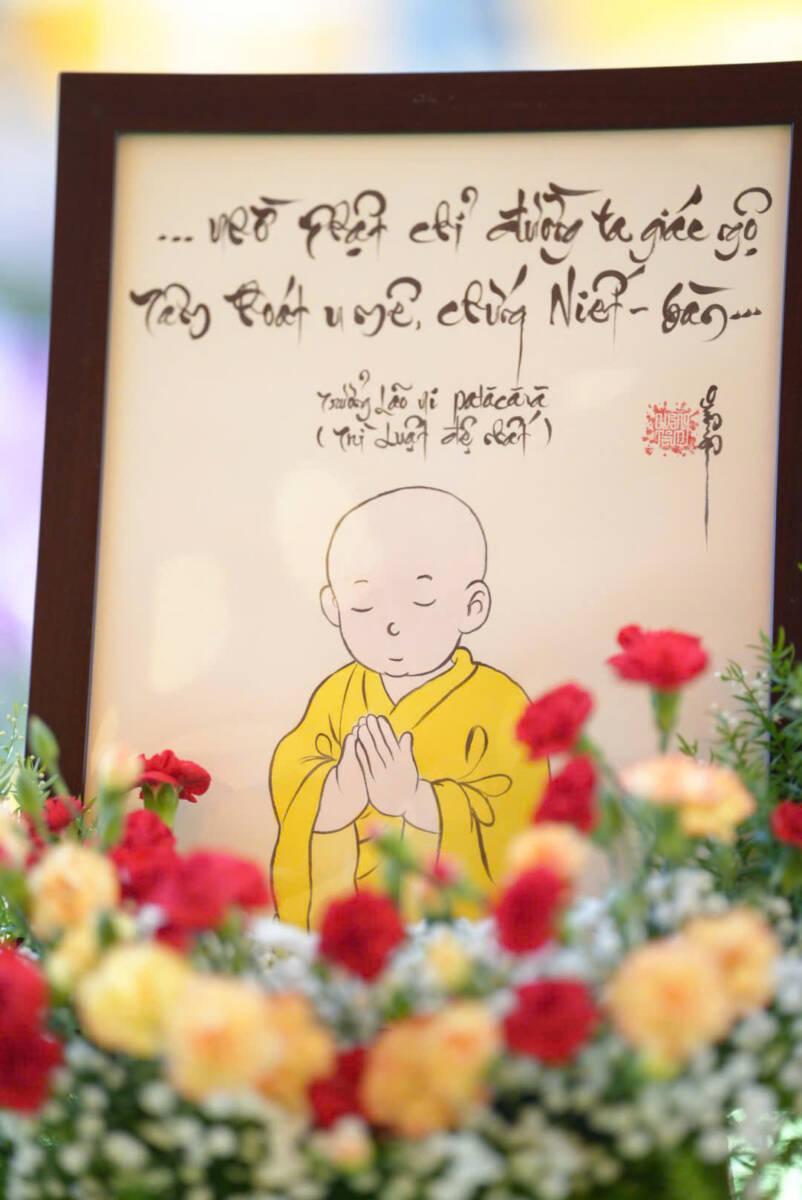 ... nhờ Phật chỉ đường ta giác ngộ
Tâm thoát u mê, chứng Niết-bàn...
Trưởng Lão Ni Patācārā
(Trì Luật đệ nhất)